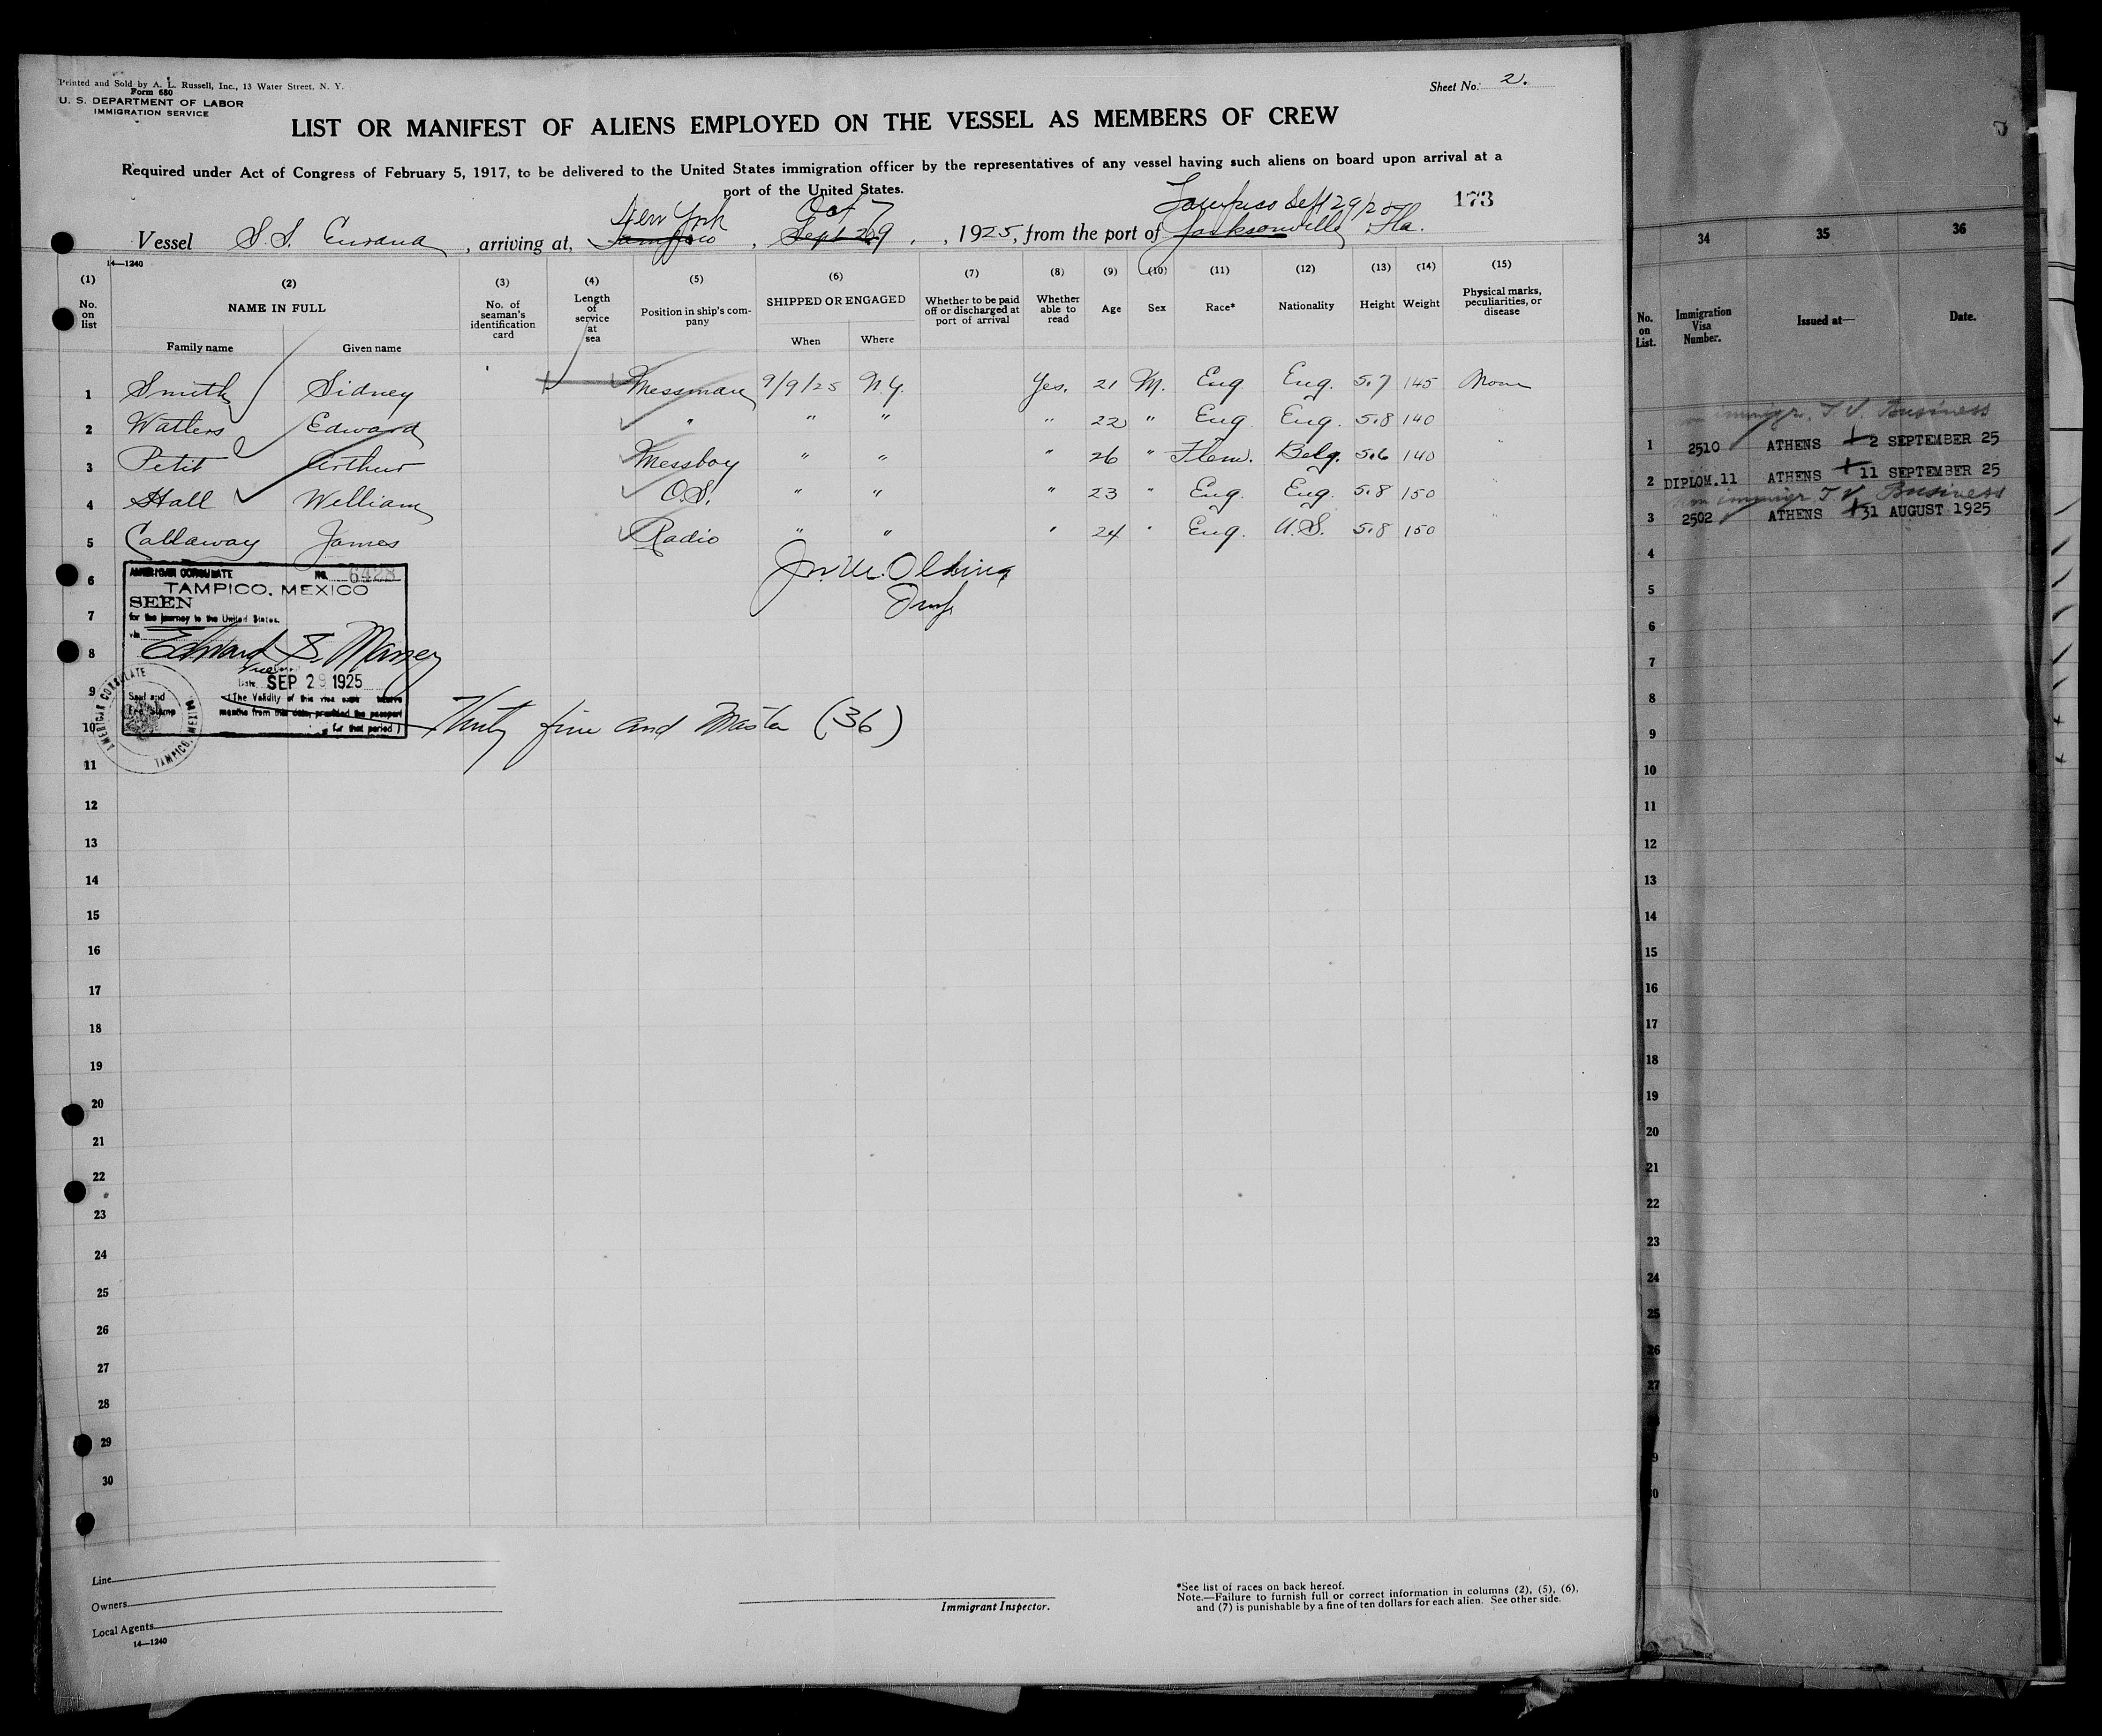 Printed and Sold by A. L. Russell, Inc., 13 Water Street, N. Y.
Form 680
U. S. DEPARTMENT OF LABOR
IMMIGRATION SERVICE
Sheet No. 2.
LIST OR MANIFEST OF ALIENS EMPLOYED ON THE VESSEL AS MEMBERS OF CREW
Required under Act of Congress of February 5, 1917, to be delivered to the United States immigration officer by the representatives of any vessel having such aliens on board upon arrival at a
port of the United States.
173
New York Oct 7 Tampico Sept 29/25
Vessel S.S. , arriving at, Tampico , Sept 29 , 1925, from the port of Jacksonville, Fla.
14—1240
(1) (2) (3) (4) (5) (6) (7) (8) (9) (10) (11) (12) (13) (14) (15)
No. on list
NAME IN FULL
Family name Given name
No. of seaman's identification card
Length of service at sea
Position in ship's company
SHIPPED OR ENGAGED
When Where
Whether to be paid off or discharged at port of arrival
Whether able to read
Age
Sex
Race*
Nationality
Height
Weight
Physical marks, peculiarities, or disease
1 Smith Sidney Messman 9/9/25 N.Y. Yes. 21 M. Eng Eng. 5.7 145 None
2 Watters Edward " " " " 22 " Eng Eng. 5.8 140
3 Petit Arthur Messboy " " " 26 " Flem. Belg. 5.6 140 "
4 Hall William O.S. " " " 23 " Eng. Eng. 5.8 150
5 Callaway James Radio " " " 24 " Eng. U.S. 5.8 150 "
6
7
8
9
10
11
12
13
14
15
16
17
18
19
20
21
22
23
24
25
26
27
28
29
30
AMERICAN CONSULATE No. 6428
TAMPICO, MEXICO
SEEN
for the journey to the United States.
via
Edward S. Massey
Vice
Date SEP 29 1925
(The Validity of this visa
Seal and
Fee Stamp
months from this date, provided the passport
for that period)
AMERICAN CONSULATE
TAMPICO, MEXICO
Thirty five and Master (36)
Line
Owners
Local Agents
14—1240
Immigrant Inspector.
*See list of races on back hereof.
Note.—Failure to furnish full or correct information in columns (2), (5), (6),
and (7) is punishable by a fine of ten dollars for each alien. See other side.
34 35 36
No. on List.
Immigration Visa Number.
Issued at—
Date.
immigr. T V. Business
1 2510 ATHENS 2 SEPTEMBER 25
2 DIPLOM.11 ATHENS 11 SEPTEMBER 25
immigr T V Business
3 2502 ATHENS 31 AUGUST 1925
4
5
6
7
8
9
10
11
12
13
14
15
16
17
18
19
20
21
22
23
24
25
26
27
9
0